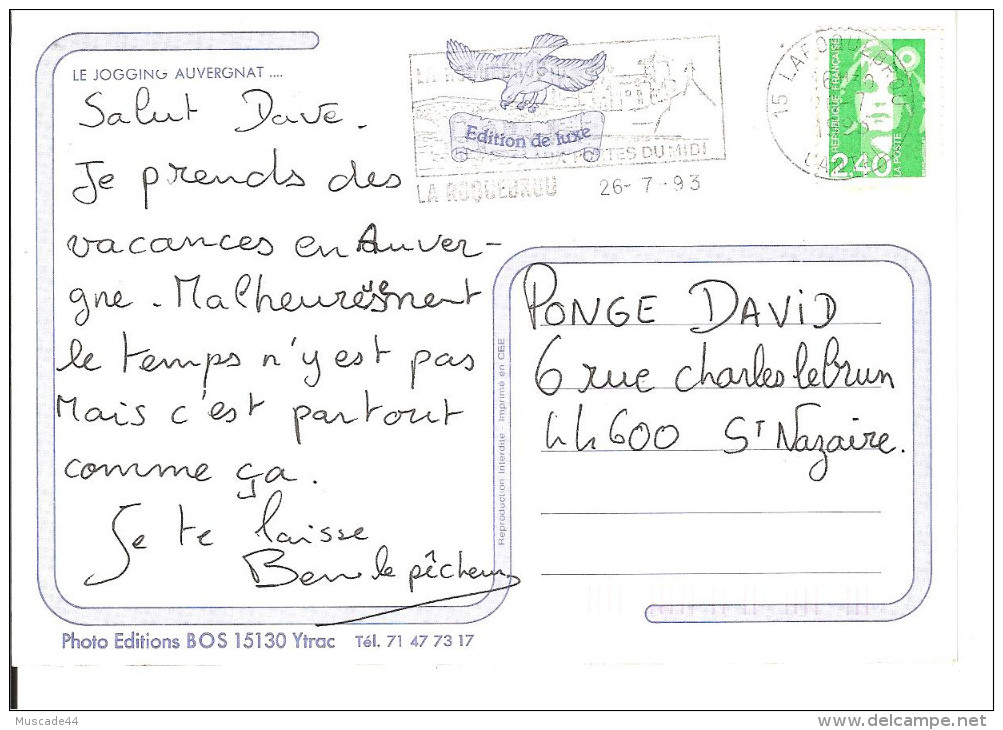 LE JOGGING AUVERGNAT ....
Salut Dave.
Je prends des
vacances en Auver-
gne. Malheureusement
le temps n'y est pas
Mais c'est partout
comme ça.
Je te laisse
Ben le pêcheur
Photo Editions BOS 15130 Ytrac Tél. 71 47 73 17
Edition de luxe
PORTES DU MIDI
LA ROQUEBROU 26-7-93
15 LAROQUEBROU
REPUBLIQUE FRANÇAISE
2,40
LA POSTE
Reproduction Interdite - Imprimé en CEE
PONGE DAVID
6 rue charles lebrun
44600 St Nazaire.
Muscade44
delcampe.net